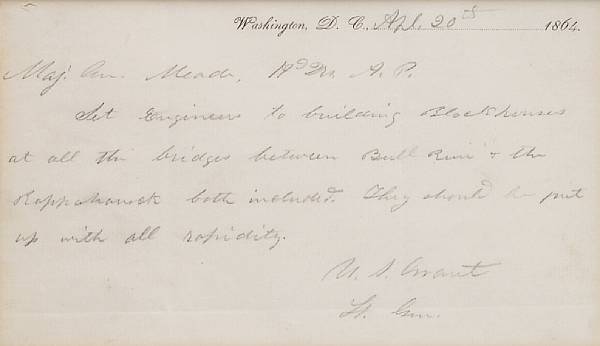 Washington, D. C., Apl. 20th 1864.
Maj. Gen. Meade, Hd Qrs. A. P.
Set Engineers to building Blockhouses
at all the bridges between Bull Run & the
Rappahannock both included. They should be put
up with all rapidity.
U. S. Grant
Lt. Gen.